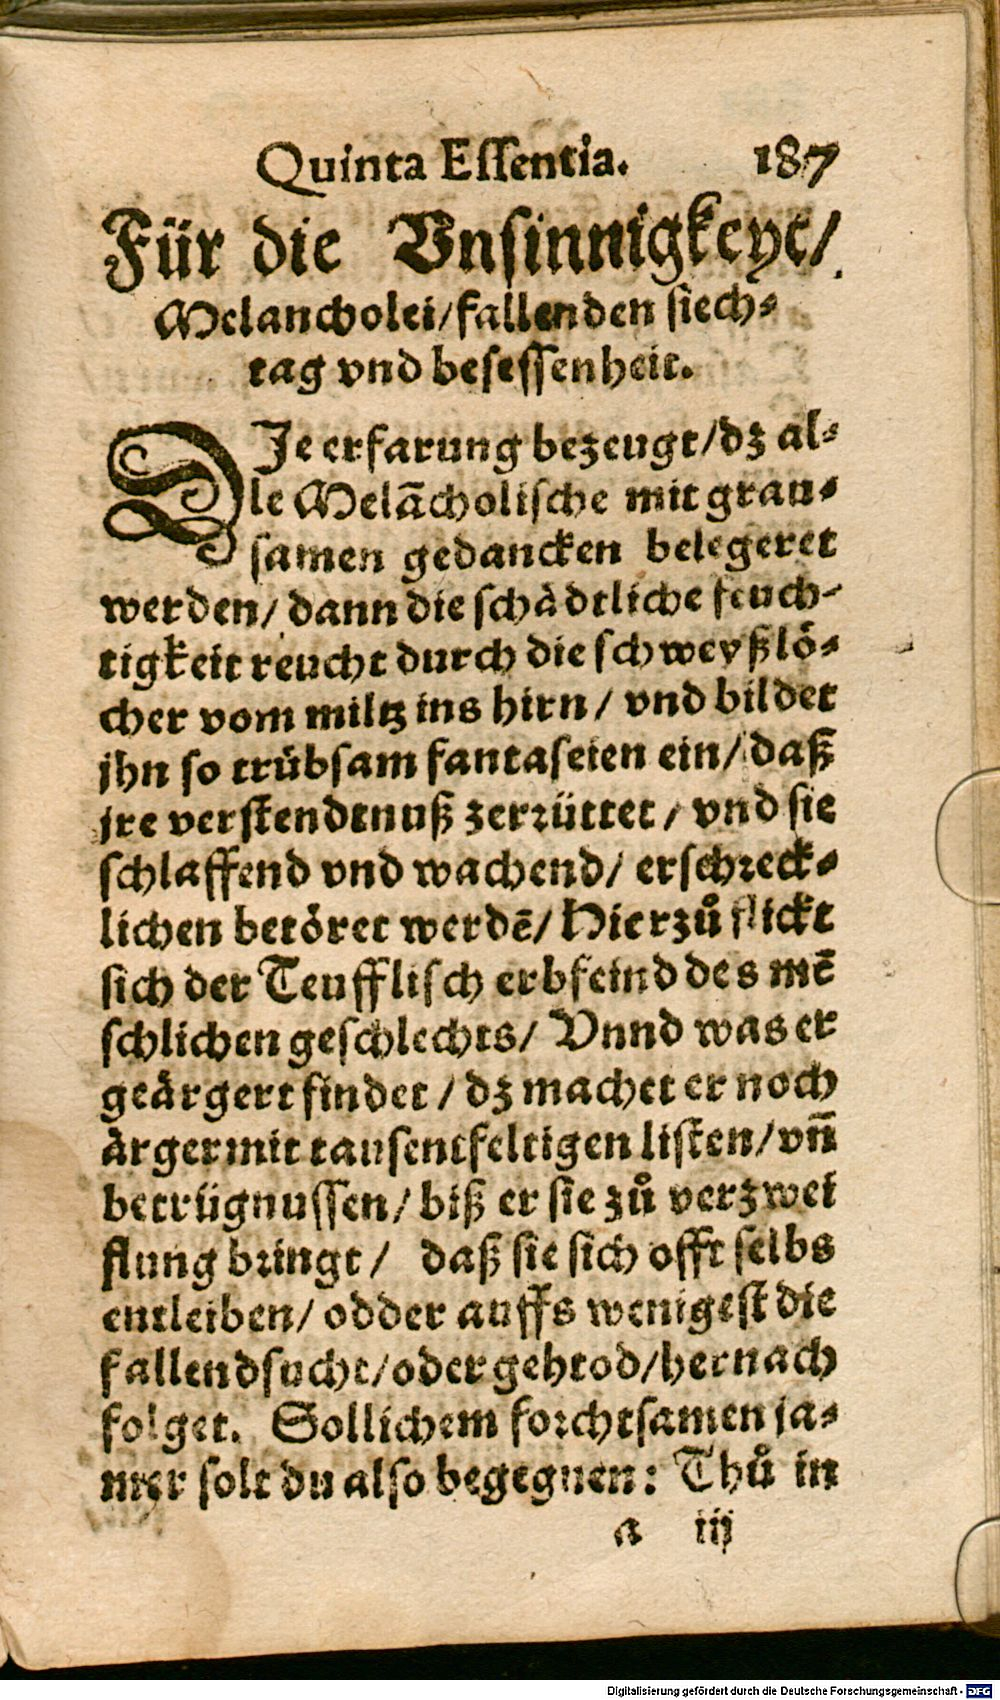 Quinta Essentia. 187
Für die Vnsinnigkeyt/
Melancholei/fallenden siech-
tag vnd besessenheit.
DJe erfarung bezeugt/dz al-
le Melãcholische mit grau-
samen gedancken belegeret
werden/ dann die schädtliche feuch-
tigkeit reucht durch die schweyßlö-
cher vom miltz ins hirn/ vnd bildet
jhn so trübsam fantaseien ein/ daß
jre verstendtnuß zerrüttet/ vnd sie
schlaffend vnd wachend/ erschreck-
lichen betöret werdē/ Hierzů flickt
sich der Teufflisch erbfeind des mē
schlichen geschlechts/ Vnnd was er
geärgert findet/ dz machet er noch
ärger mit tausentfeltigen listen/ vñ
betrügnussen/ biß er sie zů verzwei
flung bringt/ daß sie sich offt selbs
entleiben/ odder auffs wenigest die
fallendsucht/oder gehtod/hernach
folget. Sollichem forchtsamen ja-
mer solt du also begegnen: Thů in
a iij
Digitalisierung gefördert durch die Deutsche Forschungsgemeinschaft - DFG